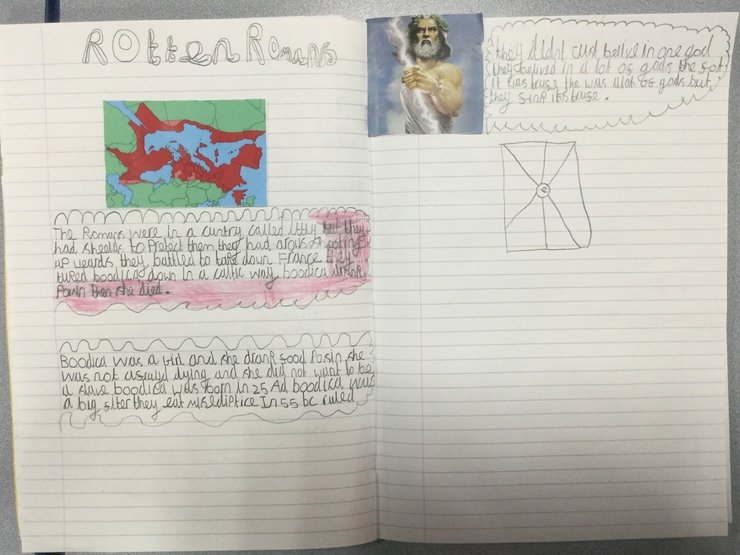 ROtten Romans
The Romans were in a cuntry called Ittly but they
had sheelds to Protect them they had arows shooting
up weards they battled to take down France they
tured boodica down in a celtic way boodica drank
Poisin then she died.
Boodica was a girl and she drank food Poisin she
was not asrayd dying and she did not want to be
a slave boodica was born in 25 Ad boodica was
a big they eat in 55 bc ruled
they didnt Just belive in one god
they belived in a lot os gods the
it was bruse the was alot os gods but
they its bruse.